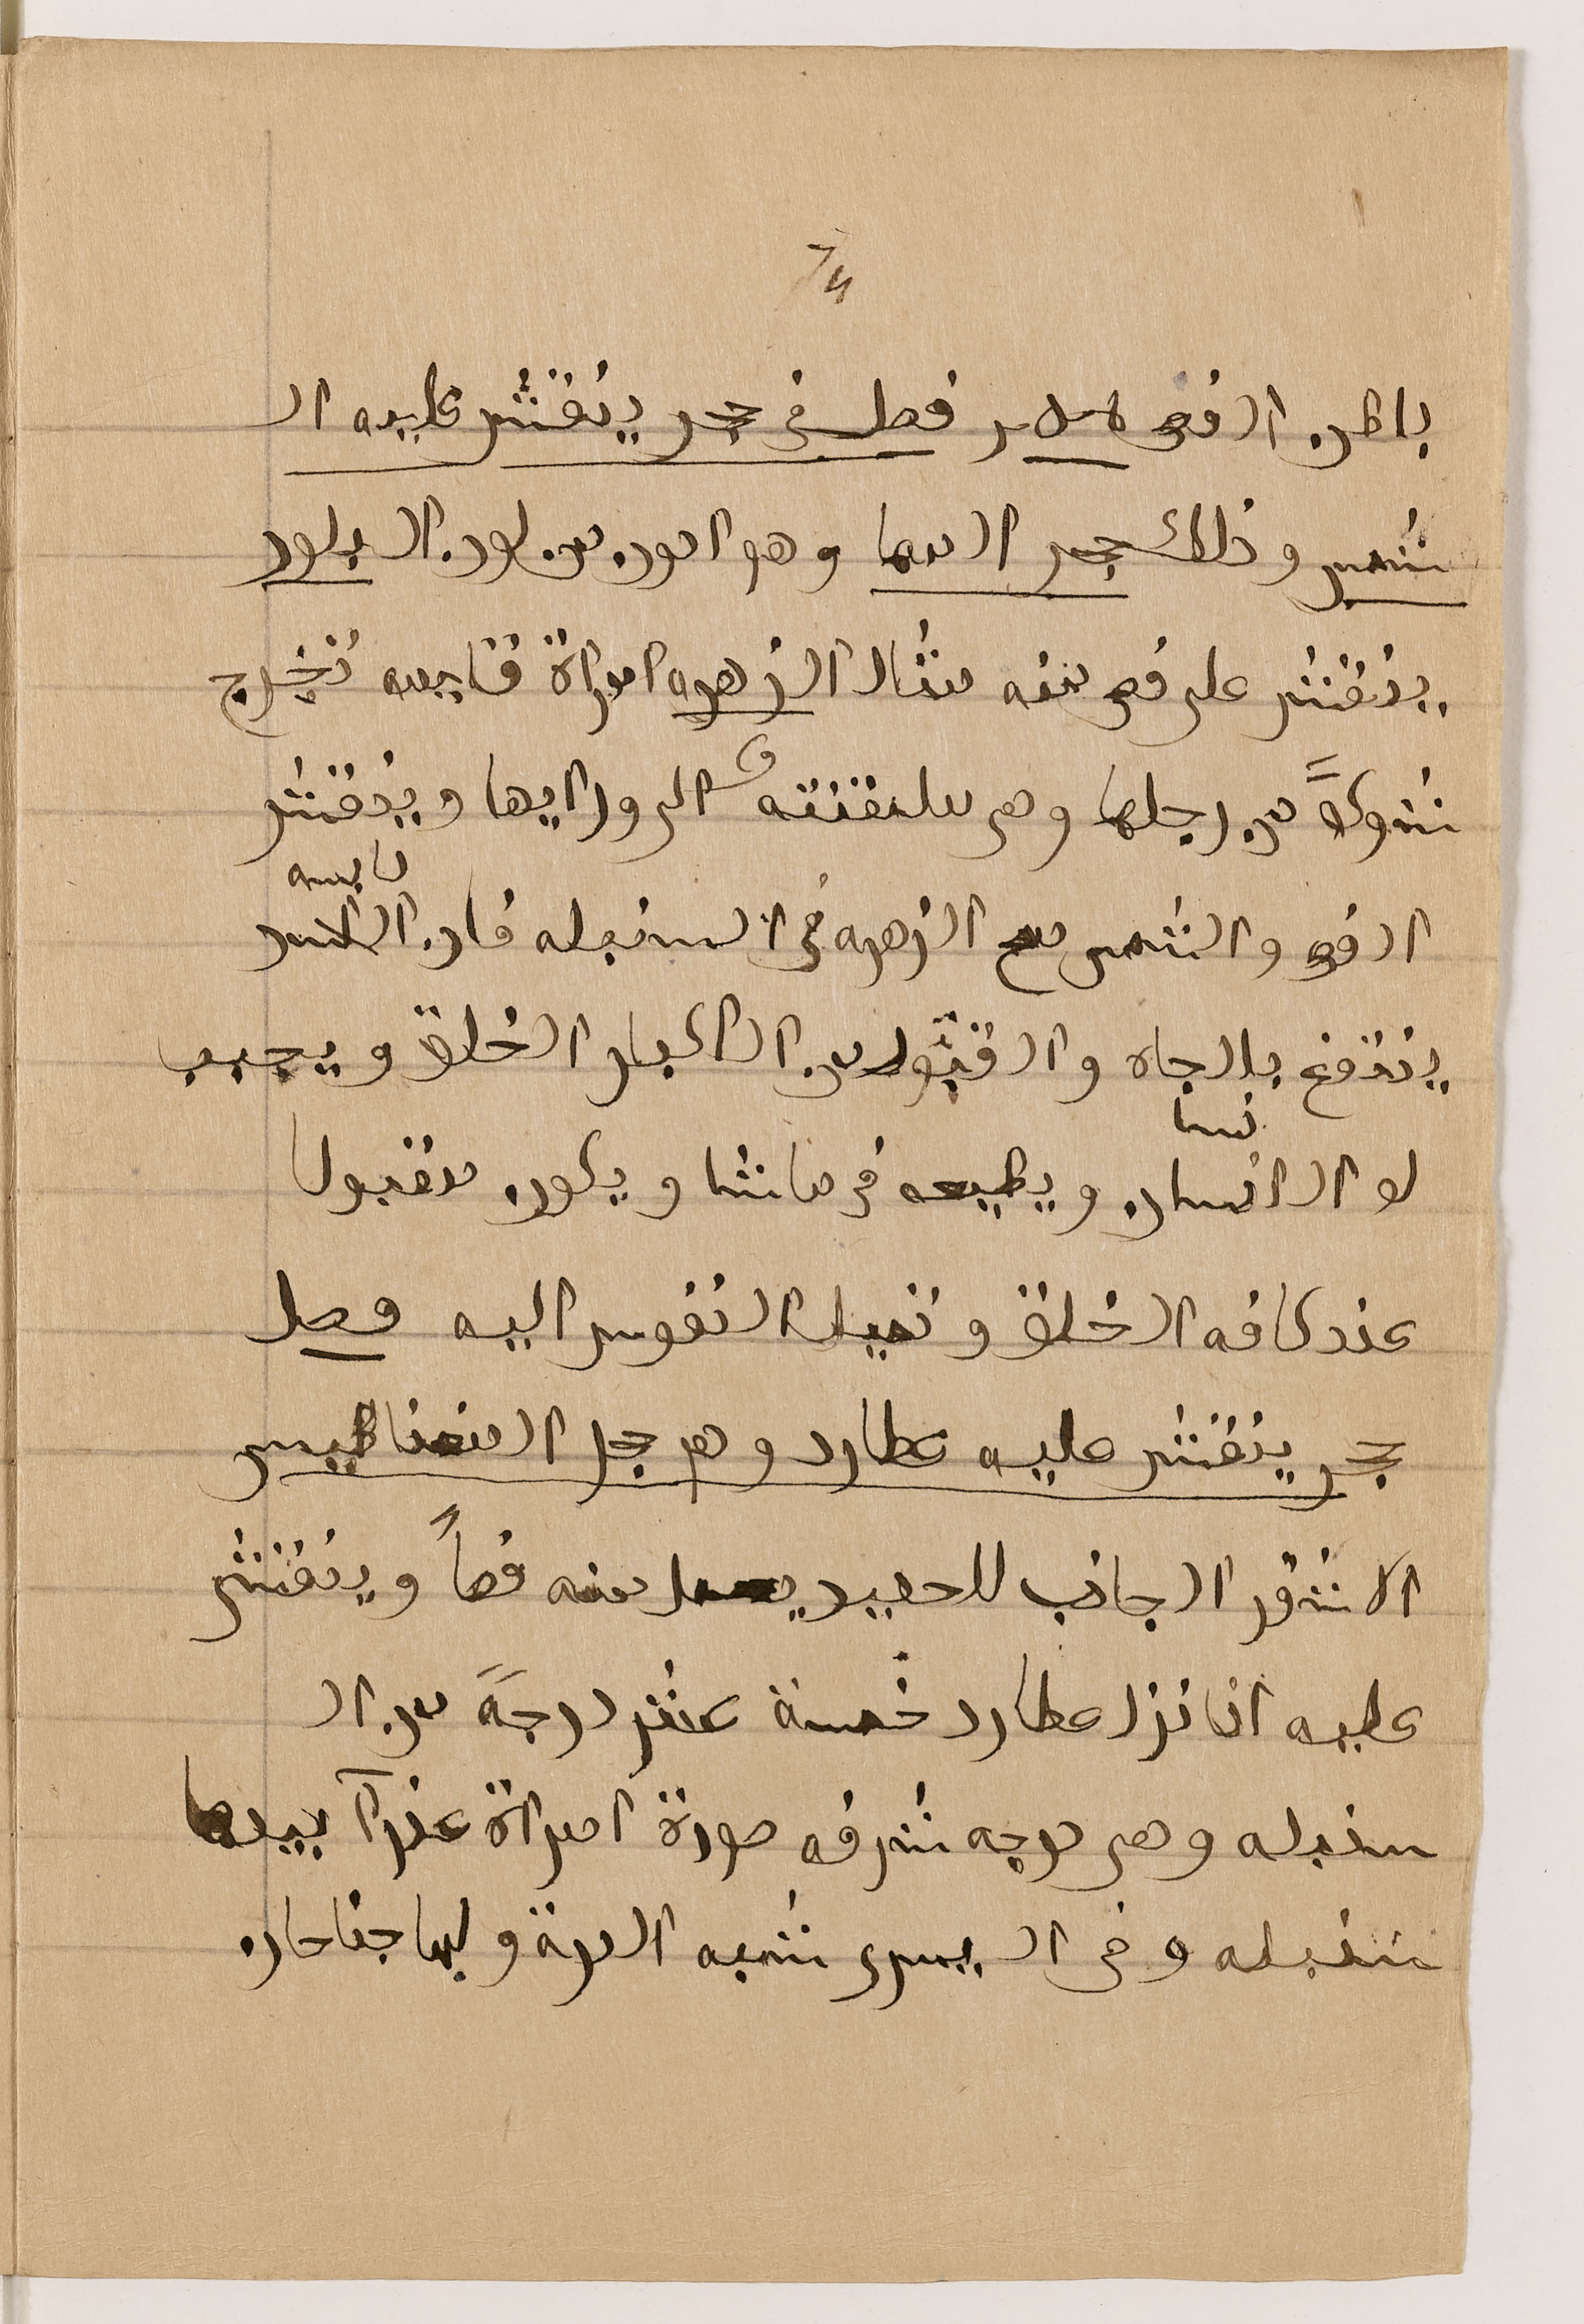 باطن الفص فصل فى حجر ينقش عليه ال
شمس وذلك حجر المها وهو ابود من لون البلور
ينقش على فص منه مثال الزهره امراة قايمه تخرج
شوكةً من رجلها وهى ملتفته الى ورايها وينقش
لابسه
الفص والشمس مع الزهره فى السنبله فان
ينتفع بالجاه والقبول من الاكبار الخلق ويجيب
نسا
لو الانسان ويطيعه فى ماشا ويكون مقبولا
عند كافه الخلق وتميل النفوس اليه فصل
حجر ينقش عليه عطارد وهو حجر المغناطيس
الاشقر الجاذب للحديد يعمل منه فصاً وينقش
عليه اذا نزل عطارد خمسة عشر درجة من ال
سنبله وهى درجه شرفه صورة امراة عذرآ بيدها
سنبله وفى اليسرى شبه المرة ولها جناحان